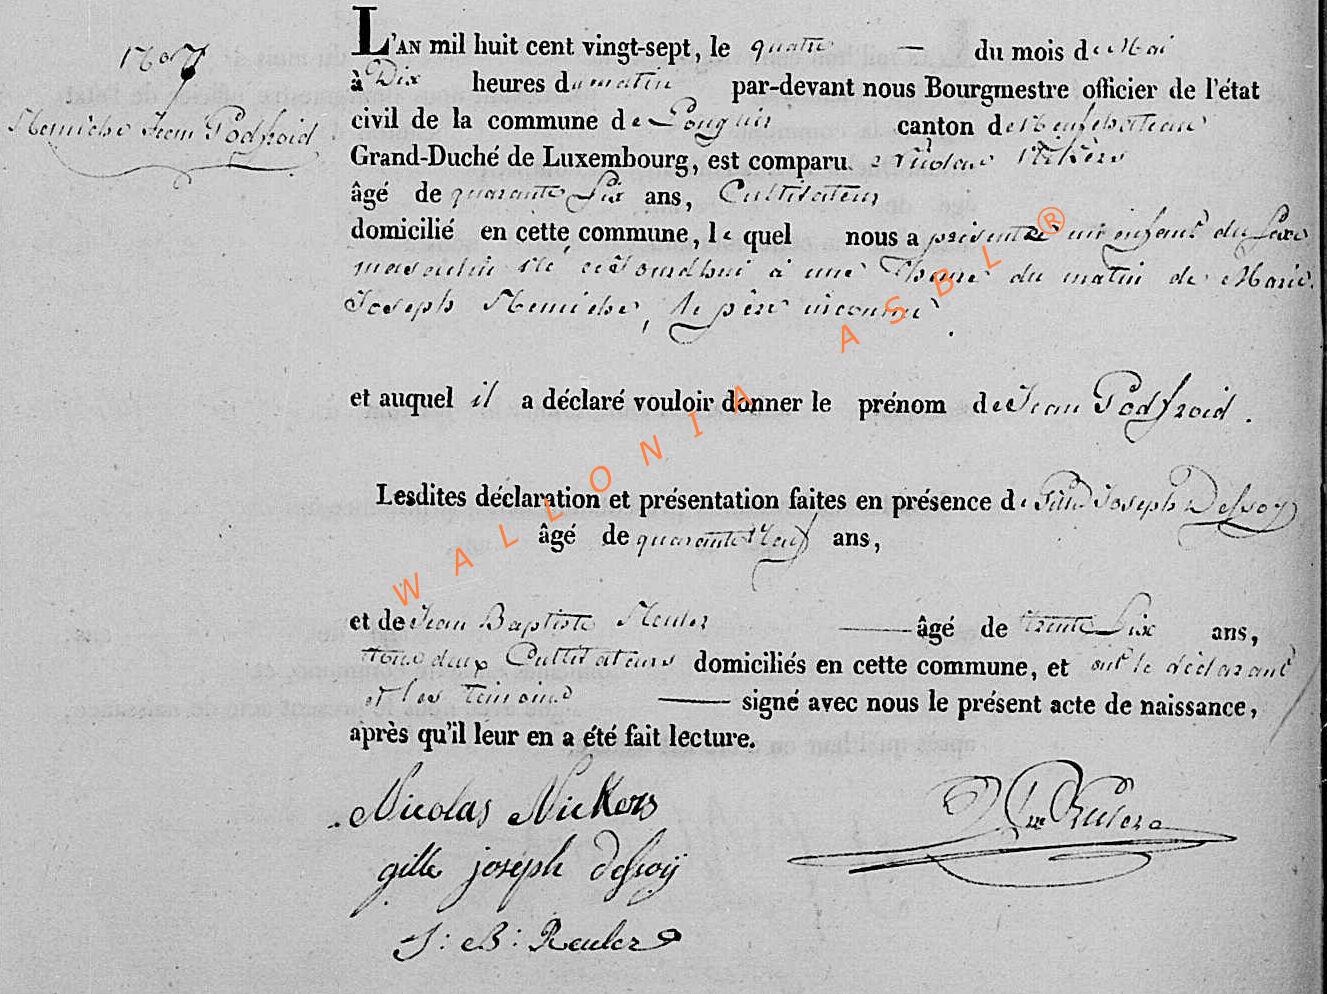 N° 7
Hemiche Jean Godfroid
L'AN mil huit cent vingt-sept, le quatre du mois de Mai
à Dix heures du matin par-devant nous Bourgmestre officier de l'état
civil de la commune de canton de Neufchateau
Grand-Duché de Luxembourg, est comparu Nicolas Nickers
âgé de quarante Six ans, Cultivateur
domicilié en cette commune, le quel nous a présenté un enfant du Sexe
masculin Né à une heure du matin de Marie
Joseph Hemiche, le père inconnu.
et auquel il a déclaré vouloir donner le prénom de Jean Godfroid.
Lesdites déclaration et présentation faites en présence de Gille Joseph Dessoy
âgé de quarante Neuf ans,
et de Jean Baptiste Reuler âgé de trente Six ans,
tous deux Cultivateurs domiciliés en cette commune, et ont le déclarant
et les témoins signé avec nous le présent acte de naissance,
après qu'il leur en a été fait lecture.
Nicolas Nickers
gille joseph dessoÿ
J: B: Reuler
WALLONIA ASBL ®